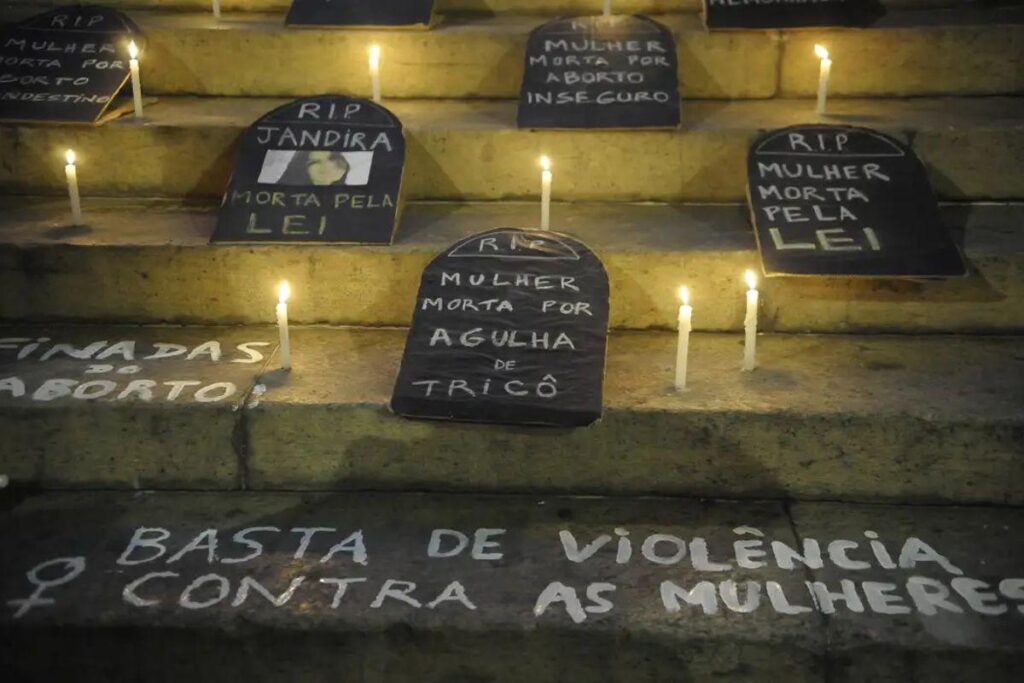 R.I.P
MULHER
MORTA POR
ABORTO
INSEGURO
R.I.P
MULHER
MORTA POR
RIP
JANDIRA
MORTA PELA
LEI
R.I.P
MULHER
MORTA
PELA
LEI
R.I.P
MULHER
MORTA POR
AGULHA
DE
TRICÔ
FINADAS
DO
ABORTO:
BASTA DE VIOLÊNCIA
CONTRA AS MULHERES